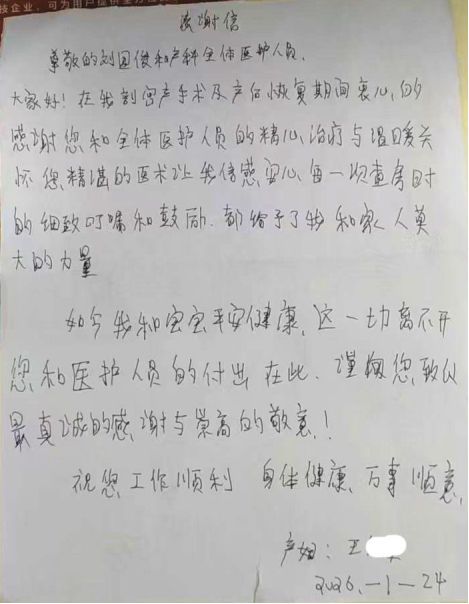 核企业，可为用户提供全方位
感谢信
尊敬的刘国俊和产科全体医护人员.
大家好！在我剖宫产手术及产后恢复期间衷心的
感谢您和全体医护人员的精心治疗与温暖关
怀您精湛的医术让我倍感安心每一次查房时
的细致叮嘱和鼓励.都给予了我和家人莫
大的力量
如今我和宝宝平安健康,这一切离不开
您和医护人员的付出在此.谨向您致以
最真诚的感谢与崇高的敬意!
祝您工作顺利 身体健康,万事顺意,
产妇：王
2026.-1-24